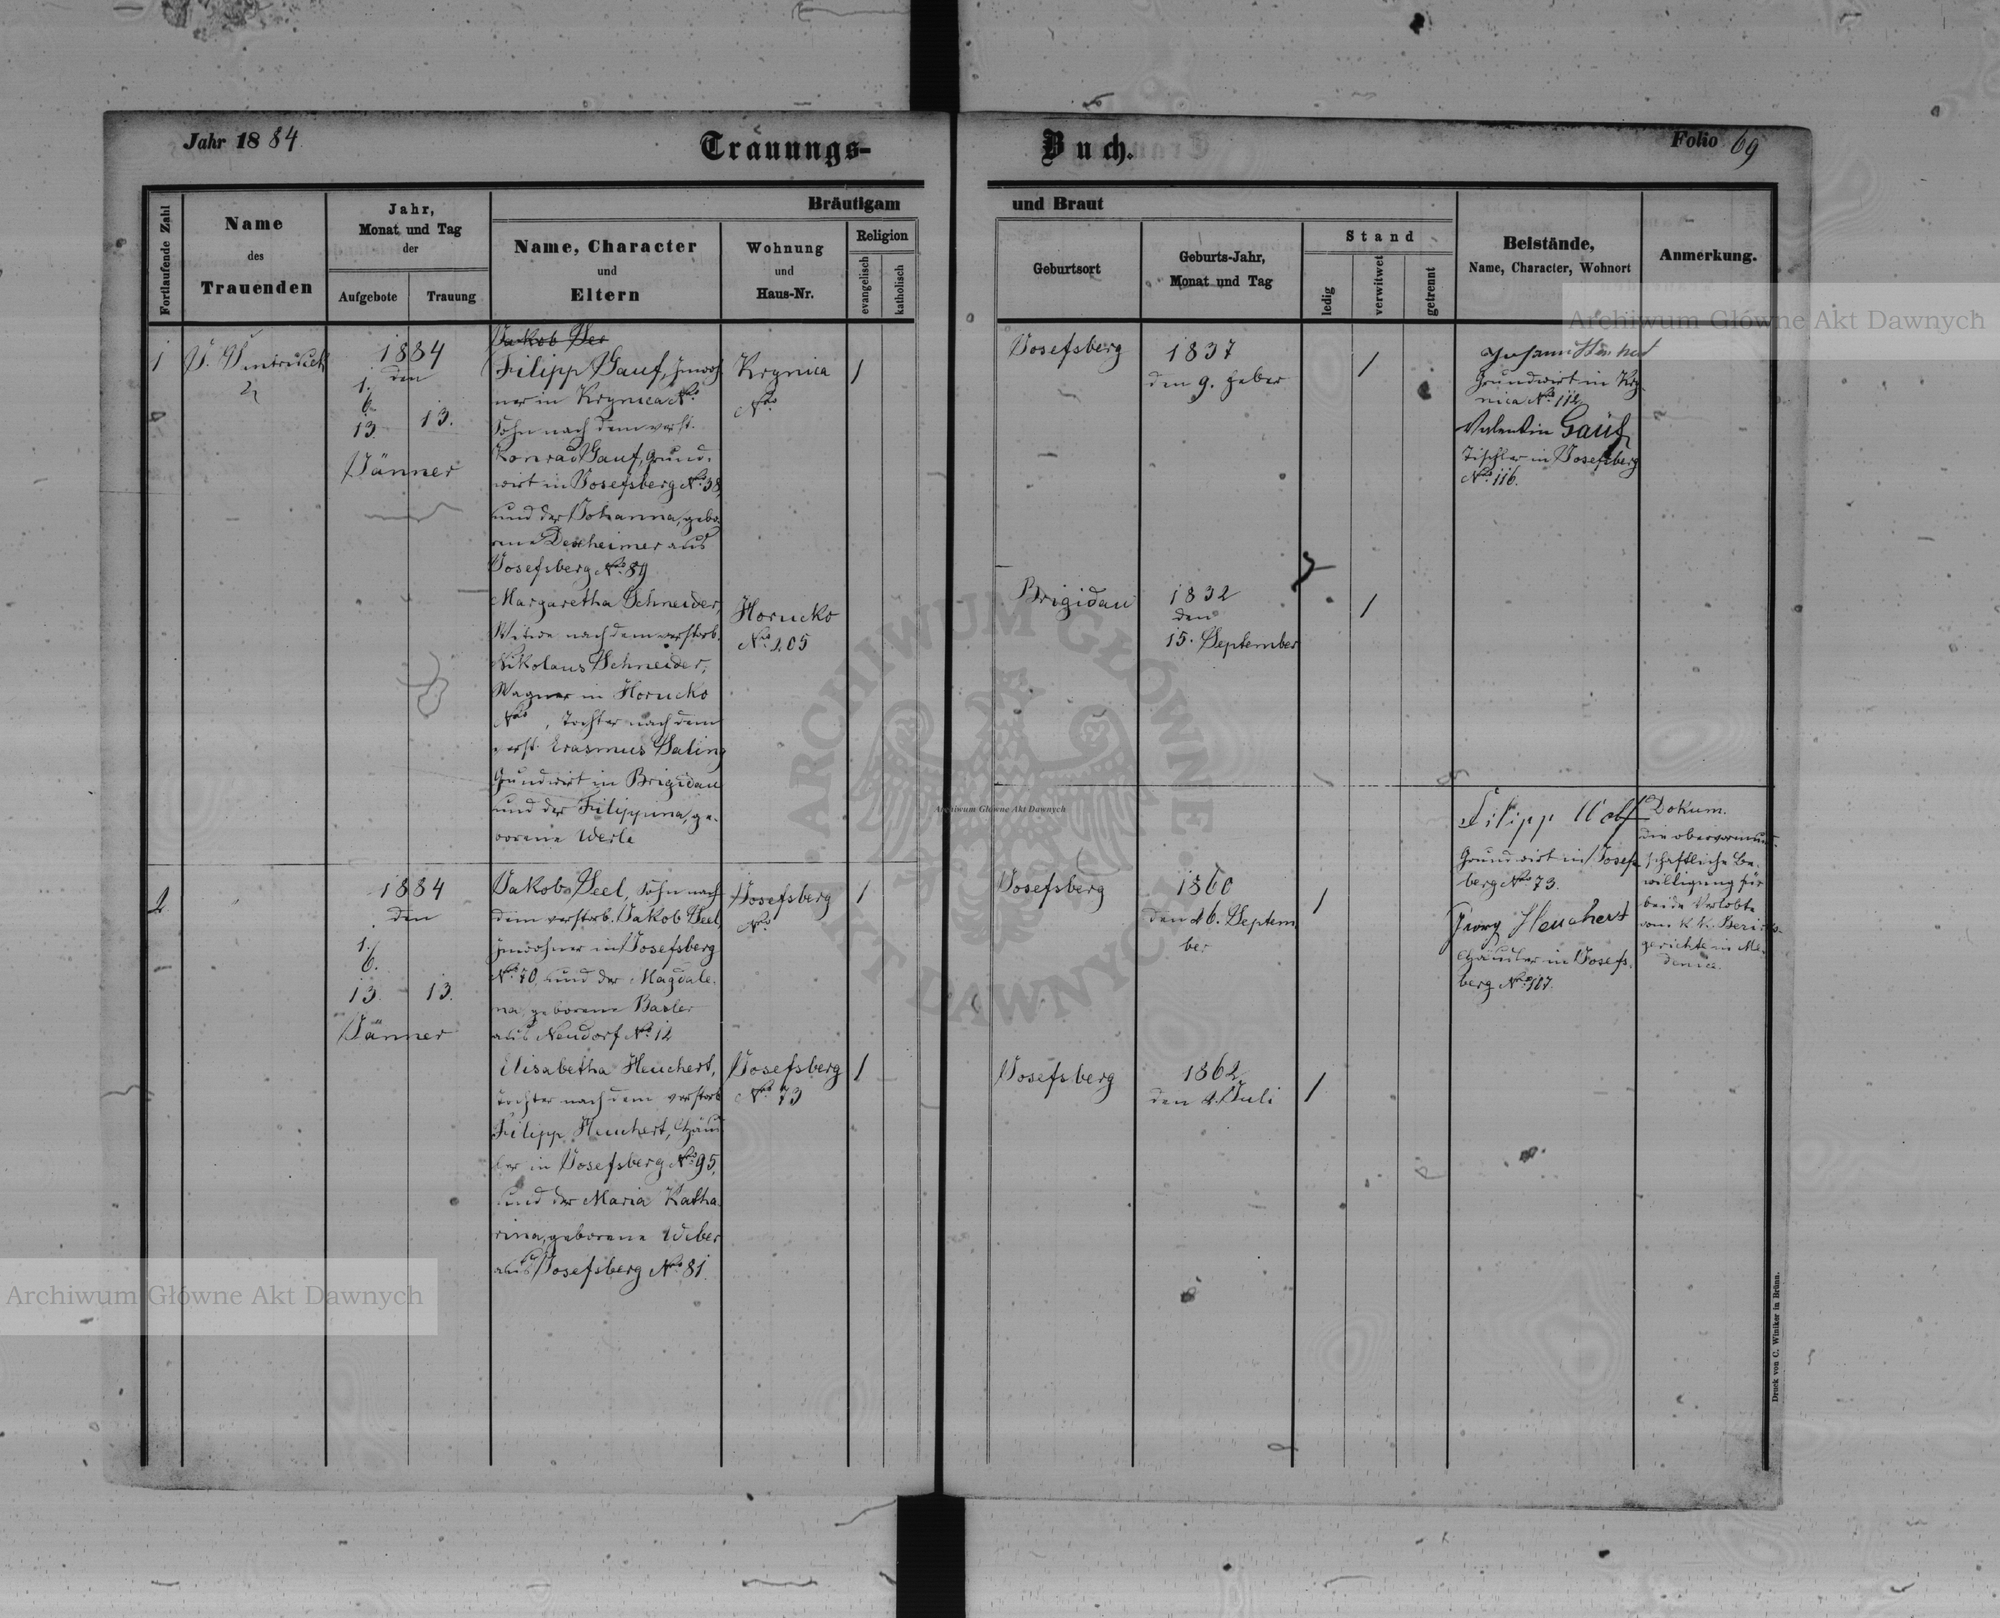 Jahr 1884.
Trauungs-
Buch.
Folio 69
Fortlaufende Zahl
Name
des
Trauenden
Jahr,
Monat und Tag
der
Aufgebote
Trauung
Bräutigam
Name, Character
und
Eltern
Wohnung
und
Haus-Nr.
Religion
evangelisch
katholisch
und Braut
Geburtsort
Geburts-Jahr,
Monat und Tag
Stand
ledig
verwitwet
getrennt
Beistände,
Name, Character, Wohnort
Anmerkung.
1
1884
den
1.
6.
13. 13.
Jänner
Filipp Gauf, Inwoh
ner in Krynica No
Sohn nach dem verst.
Konrad Gauf, Grund-
wirt in Josefsberg No 38,
und der Johanna, gebo-
rene Dexheimer aus
Josefsberg No 89
Krynica
No
1
Josefsberg
1837
den 9. Feber
1
Johann
Grundwirt in Kry
nica No 112
Valentin Gauf,
Tischler in Josefsberg
No 116.
Margaretha Schneider,
Witwe nach dem verstorb.
Nikolaus Schneider,
Wagner in Horucko
No , Tochter nach dem
verst. Erasmus Saling
Grundwirt in Brigidau
und der Filippina, ge-
borene Werle
Horucko
No 105
Brigidau
1832
den
15. September
1
2
1884
den
1.
6.
13. 13.
Jänner
Jakob Seel, Sohn nach
dem verstorb. Jakob Seel,
Inwohner in Josefsberg
No 70, und der Magdale-
na, geborene Basler
aus Neudorf No 12
Josefsberg
No
1
Josefsberg
1860
den 16. Septem
ber
1
Filipp Wolf
Grundwirt in Josefs
berg No 73.
Georg Heuchert
Häusler in Josefs-
berg No 107.
Dokum.
die obervormund-
schaftliche Be-
willigung für
beide Verlobte
vom k. k. Bezirks-
gerichte in Me-
denice.
Elisabetha Heuchert,
Tochter nach dem verstorb
Filipp Heuchert, Häus
ler in Josefsberg No 95,
und der Maria Katha
rina, geborene Weber
aus Josefsberg No 81.
Josefsberg
No 73
1
Josefsberg
1862
den 4. Juli
1
Druck von C. Winiker in Brünn.
Archiwum Główne Akt Dawnych
Archiwum Główne Akt Dawnych
Archiwum Główne Akt Dawnych
ARCHIWUM GŁÓWNE
AKT DAWNYCH